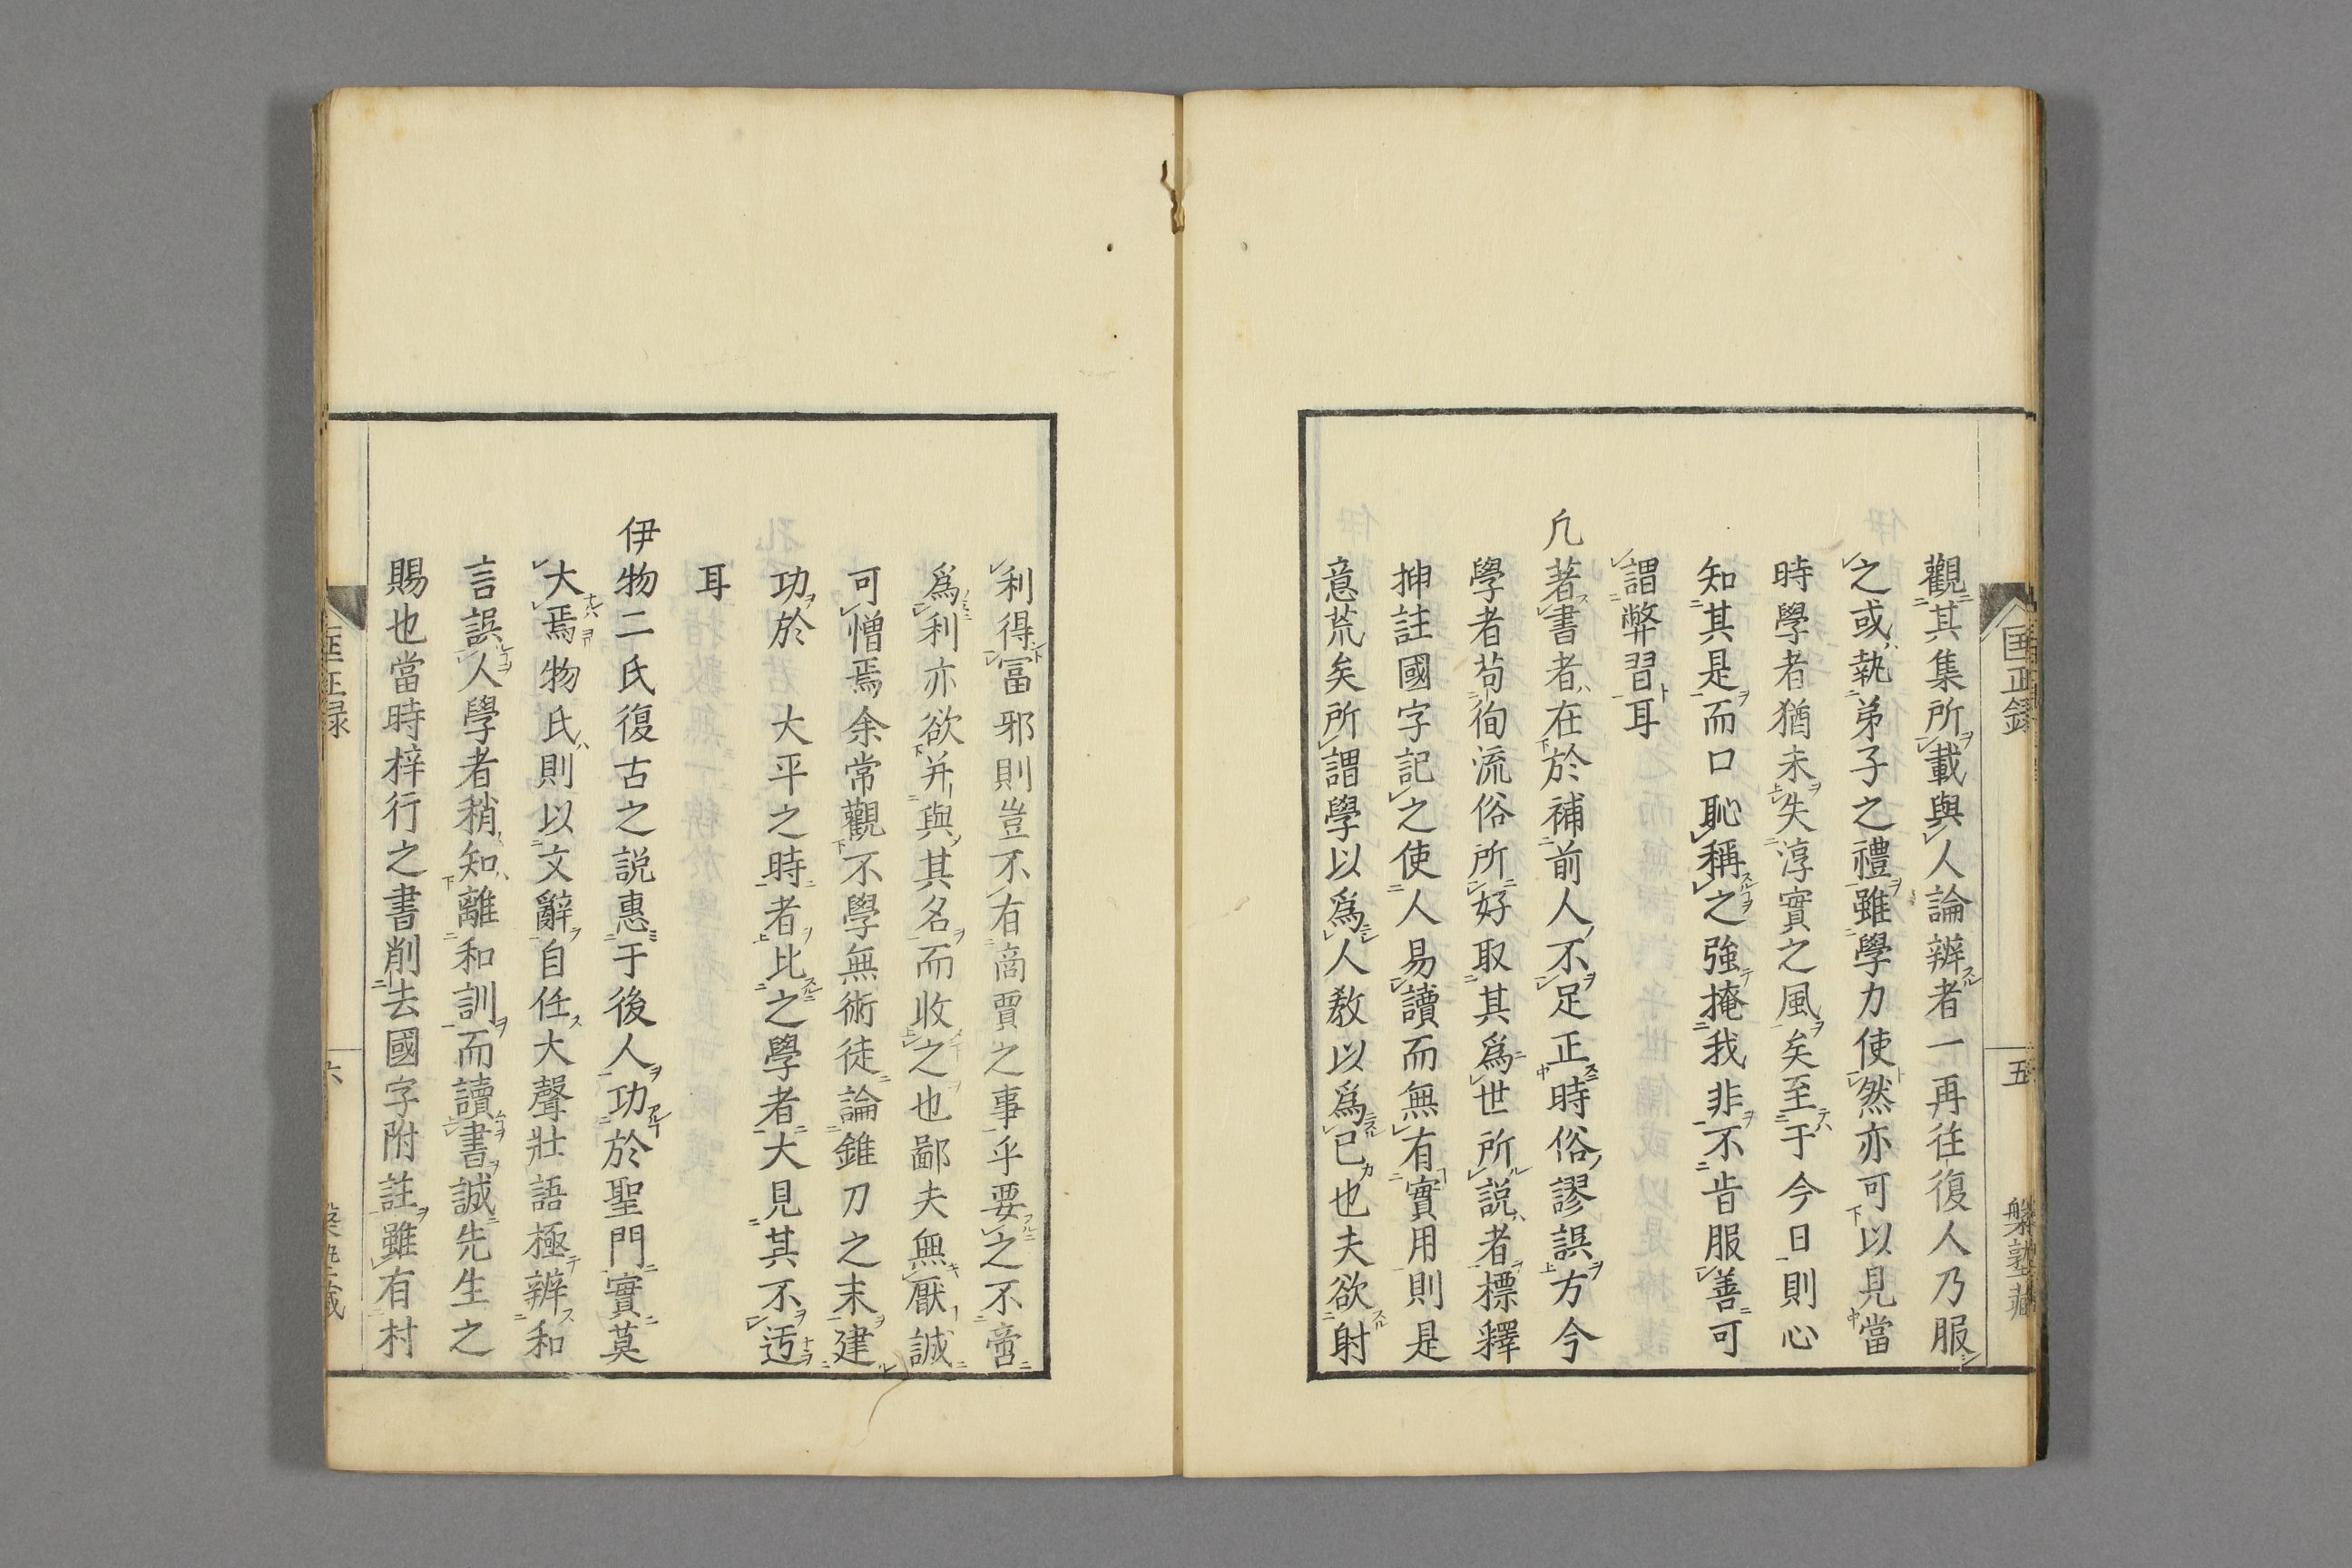 匡正録
五
槃塾藏
觀其集所載與人論辨者一再往復人乃服
之或執弟子之禮雖學力使然亦可以見當
時學者猶未失淳實之風矣至于今日則心
知其是而口恥稱之強掩我非不肯服善可
謂弊習耳
凢著書者在於補前人不足正時俗謬誤方今
學者苟徇流俗所好取其爲世所説者標釋
抻註國字記之使人易讀而無有實用則是
意荒矣所謂學以爲人教以爲已也夫欲射
利得冨邪則豈不有啇賈之事乎要之不啻
爲利亦欲并與其名而收之也鄙夫無厭誠
可憎焉余常觀不學無術徒論錐刀之末建
功於 大平之時者比之學者大見其不迃
耳
伊物二氏復古之説惠于後人功於聖門實莫
大焉物氏則以文辭自任大聲壯語極辨和
言誤人學者稍知離和訓而讀書誠先生之
賜也當時梓行之書削去國字附註雖有村
匡正録
六